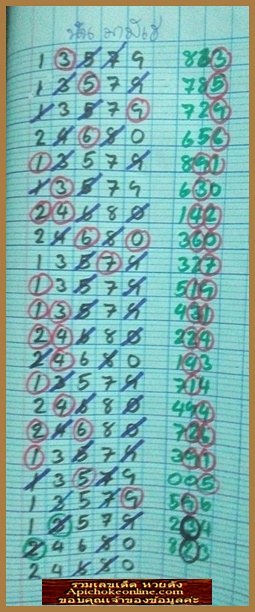 1 3 5 7 9 883
1 3 5 7 9 785
1 3 5 7 9 729
2 4 6 8 0 656
1 3 5 7 9 891
1 3 5 7 9 630
2 4 6 8 0 142
2 4 6 8 0 360
1 3 5 7 9 327
1 3 5 7 9
1 3 5 7 9 431
2 4 6 8 0 224
2 4 6 8 0 193
1 3 5 7 9 714
2 4 6 8 0 494
2 4 6 8 0 726
1 3 5 7 9 391
1 3 5 7 9 005
1 3 5 7 9
1 3 5 7 9
2 4 6 8 0 823
2 4 6 8 0
รวมเลขเด็ด หวยดัง
Aecparchinonline.com
ขอบคุณเจ้าของข้อมูลค่ะ